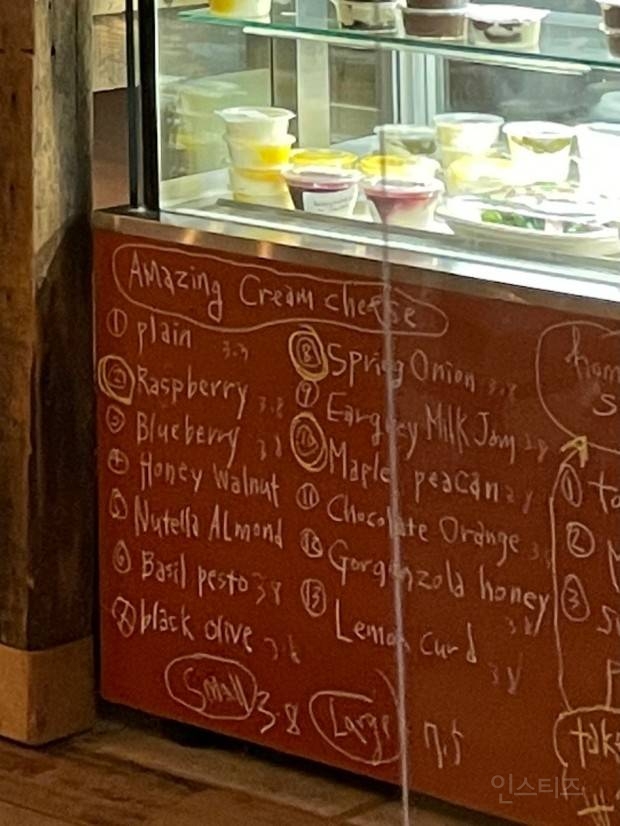 Amazing Cream cheese
① plain 3.3
② Raspberry 3.8
③ Blueberry 3.8
④ Honey Walnut
⑤ Nutella Almond
⑥ Basil pesto 3.8
⑦ black olive 3.8
⑧ Spring Onion 3.8
⑨ Eargrey Milk Jam 3.8
⑩ Maple peacan
⑪ Chocolate Orange
⑫ Gorgonzola honey 3.8
⑬ Lemon curd 3.8
Small 3.8 Large 7.5
hom
s
① to
②
③ s
take
인스티즈